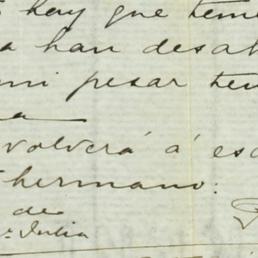 hay que teme
a han desa
mi pesar ten
a
volverá á es
hermano:
de
Julia